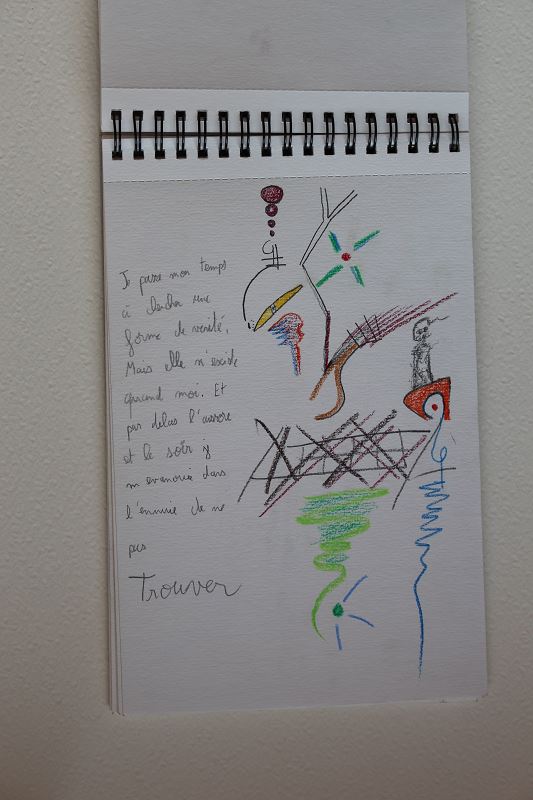 Je passe mon temps
à chercher une
forme de vérité.
Mais elle n'existe
quand moi. Et
par delas l'aurore
et le soir j
m evanouie dans
l'ennuie de ne
pas
Trouver